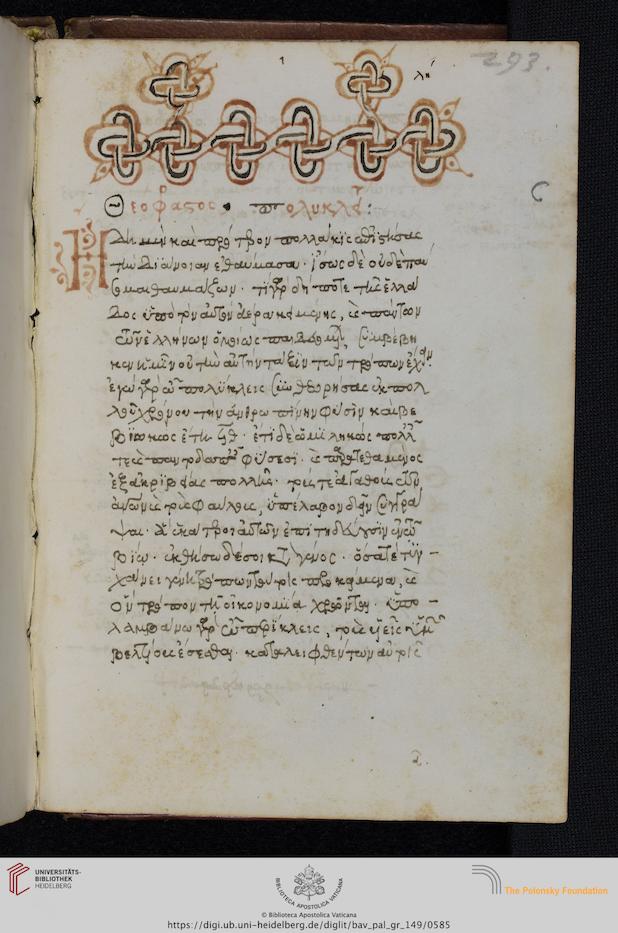 293.
Θεόφραστος πολυκλεῖ:
Ἤδη μὲν καὶ πρότερον πολλάκις ἐπιστήσας
τὴν διάνοιαν ἐθαύμασα· ἴσως δὲ οὐδὲ παύ
σομαι θαυμάζων· τί γὰρ δή ποτε τῆς ἑλλά
δος ὑπὸ τὸν αὐτὸν ἀέρα κειμένης, καὶ πάντων
τῶν ἑλλήνων ὁμοίως παιδευομένων, συμβέβη
κεν ἡμῖν οὐ τὴν αὐτὴν τάξιν τῶν τρόπων ἔχειν.
ἐγὼ γὰρ ὦ πολύκλεις συνθεωρήσας ἐκ πολ
λοῦ χρόνου τὴν ἀνθρωπίνην φύσιν καὶ βε
βιωκὼς ἔτη ϟθ· ἔτι δὲ ὡμιληκὼς πολλαῖς
τε καὶ παντοδαπαῖς φύσεσι· καὶ παρατεθεαμένος
ἐξ ἀκριβείας πολλῆς· τούς τε ἀγαθοὺς τῶν
ἀνθρώπων καὶ τοὺς φαύλους, ὑπέλαβον δεῖν συγγρά
ψαι· ἃ ἑκάτεροι αὐτῶν ἐπιτηδεύουσιν ἐν τῷ
βίῳ· ἐκθήσω δέ σοι κατὰ γένος· ὅσα τε τυγ-
χάνει γένη τρόπων τούτοις προσκείμενα, καὶ
ὃν τρόπον τῇ οἰκονομίᾳ χρῶνται· ὑπο-
λαμβάνω γὰρ ὦ πολύκλεις, τοὺς υἱεῖς ἡμῶν
βελτίους ἔσεσθαι· καταλειφθέντων αὐτοῖς
UNIVERSITÄTS-
BIBLIOTHEK
HEIDELBERG
BIBLIOTECA APOSTOLICA VATICANA
The Polonsky Foundation
© Biblioteca Apostolica Vaticana
https://digi.ub.uni-heidelberg.de/diglit/bav_pal_gr_149/0585